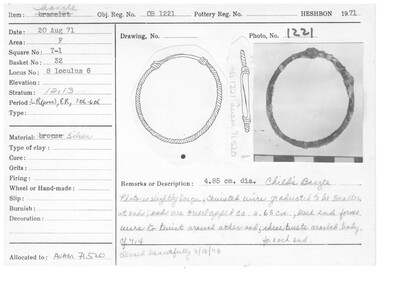 Bangle
Item: bracelet Obj. Reg. No. OB 1221 Pottery Reg. No. HESHBON 1971
Date: 20 Aug 71
Area: F
Square No: T-1
Basket No: 32
Locus No: 8 loculus 6
Elevation:
Stratum: 12,13
Period:
Type:
Material: bronze Silver
Type of clay:
Core:
Grits:
Firing:
Wheel or Hand-made:
Slip:
Burnish:
Decoration:
Allocated to: AUAM 71.520
Drawing, No.
Photo, No. 1221
Remarks or Description: 4.85 cm. dia. Child's Bangle
Photo is slightly larger, twisted wire graduated to be smaller
at ends; ends are overlapped ca. 2.65 cm., each end forms
wire to twist around other end; three twists around body,
of each end.
Cleaned beautifully